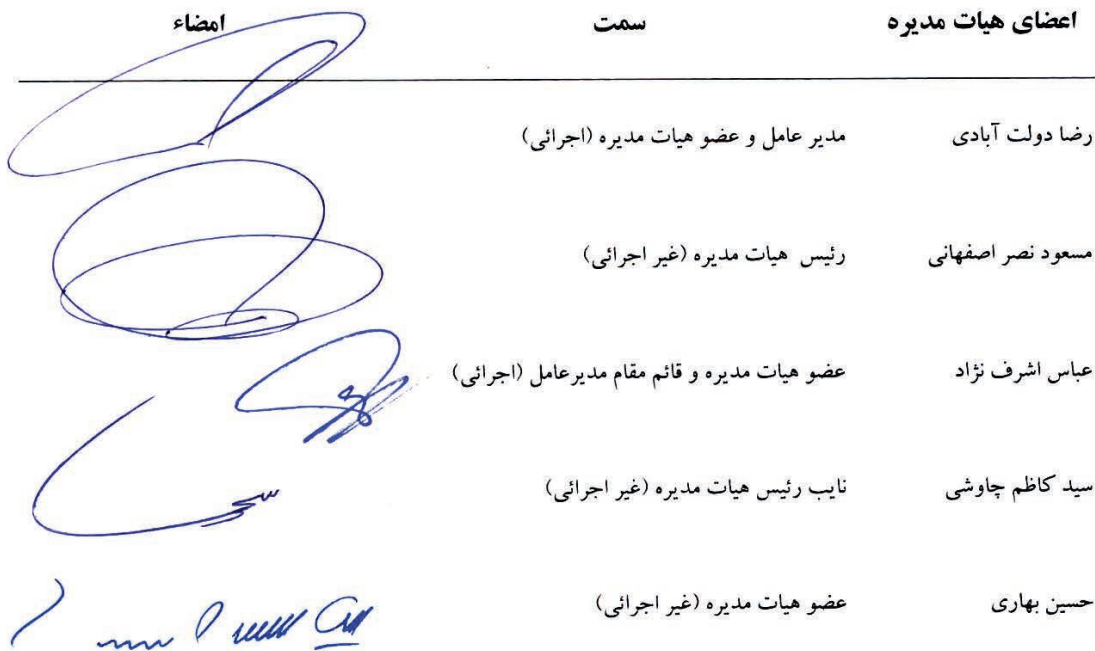 اعضای هیات مدیره سمت امضاء
رضا دولت آبادی مدیر عامل و عضو هیات مدیره (اجرائی)
مسعود نصر اصفهانی رئیس هیات مدیره (غیر اجرائی)
عباس اشرف نژاد عضو هیات مدیره و قائم مقام مدیرعامل (اجرائی)
سید کاظم چاوشی نایب رئیس هیات مدیره (غیر اجرائی)
حسین بهاری عضو هیات مدیره (غیر اجرائی)